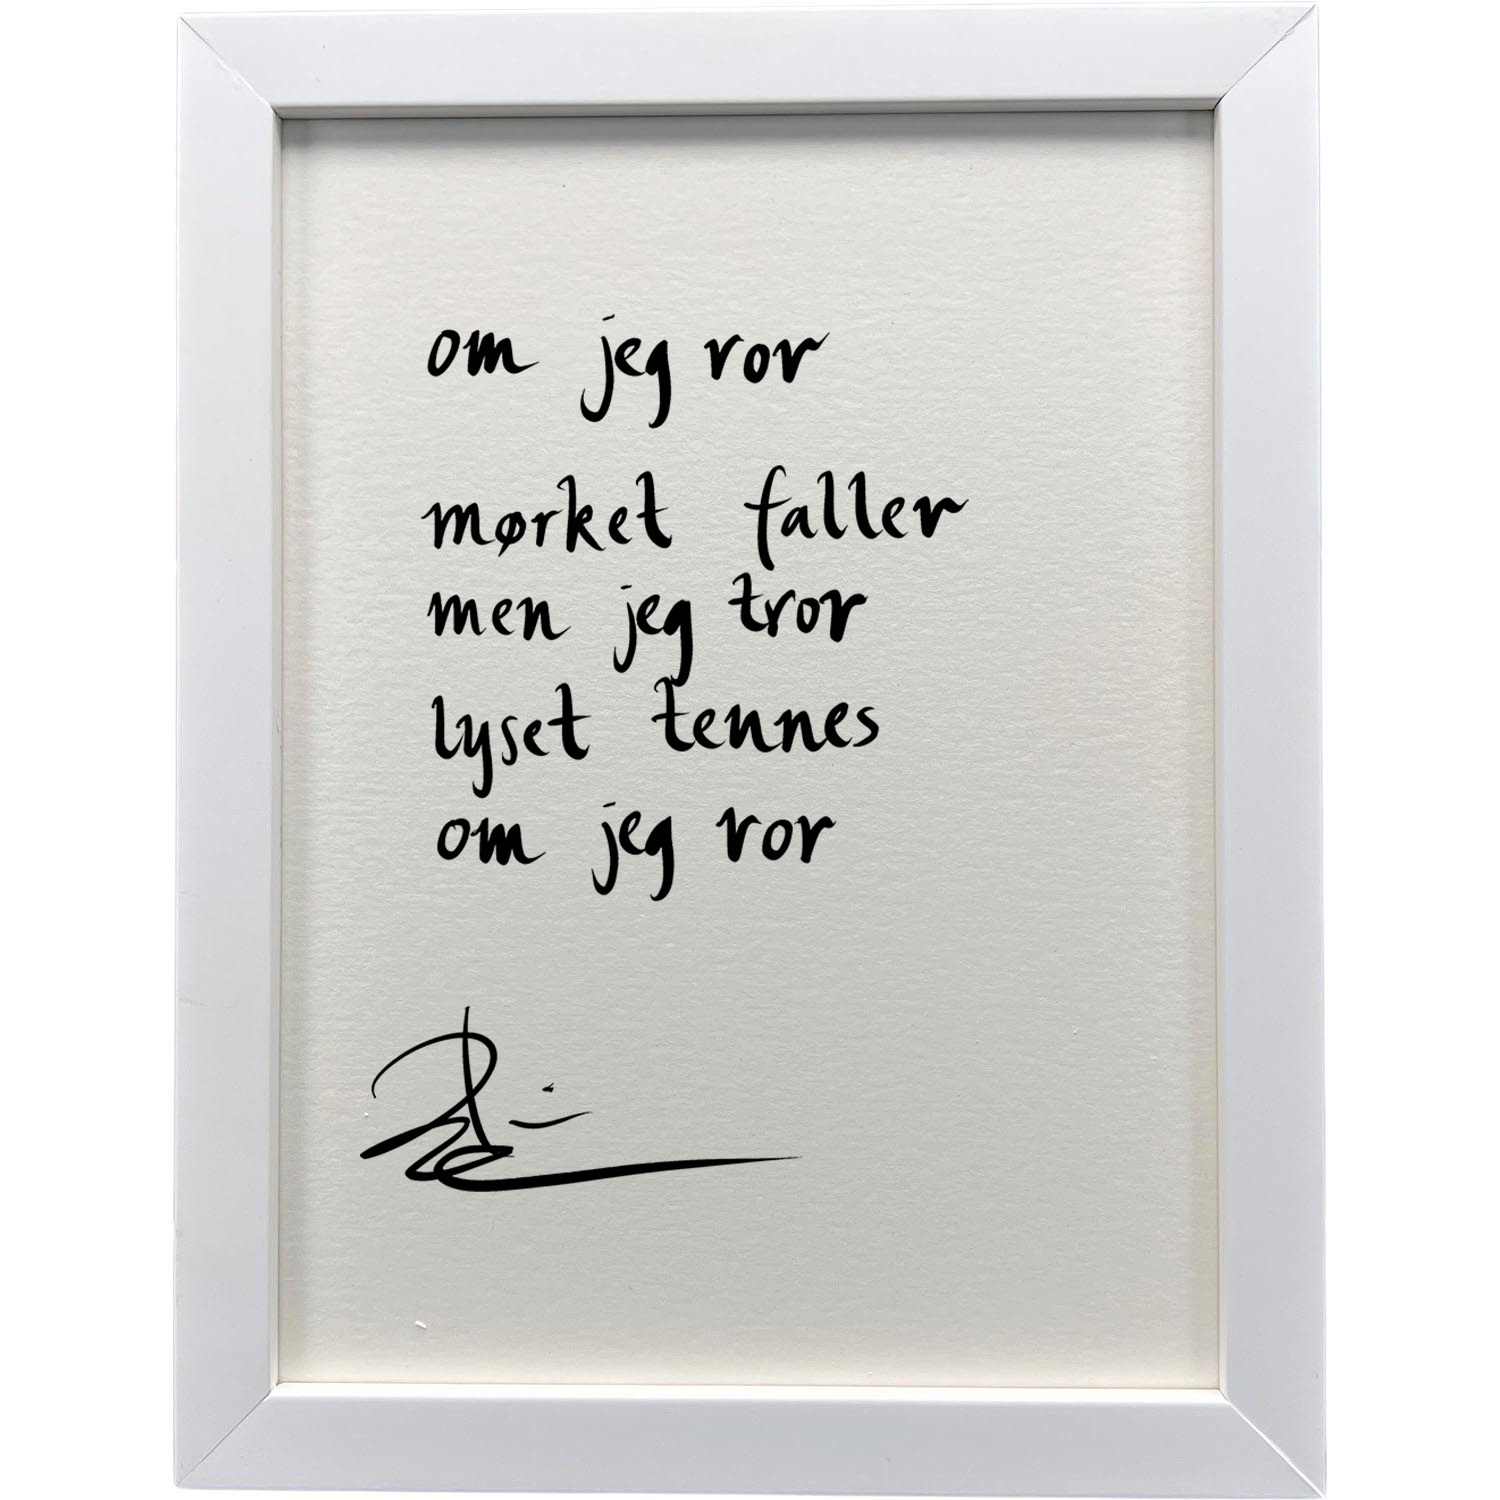 om jeg ror
mørket faller
men jeg tror
lyset tennes
om jeg ror